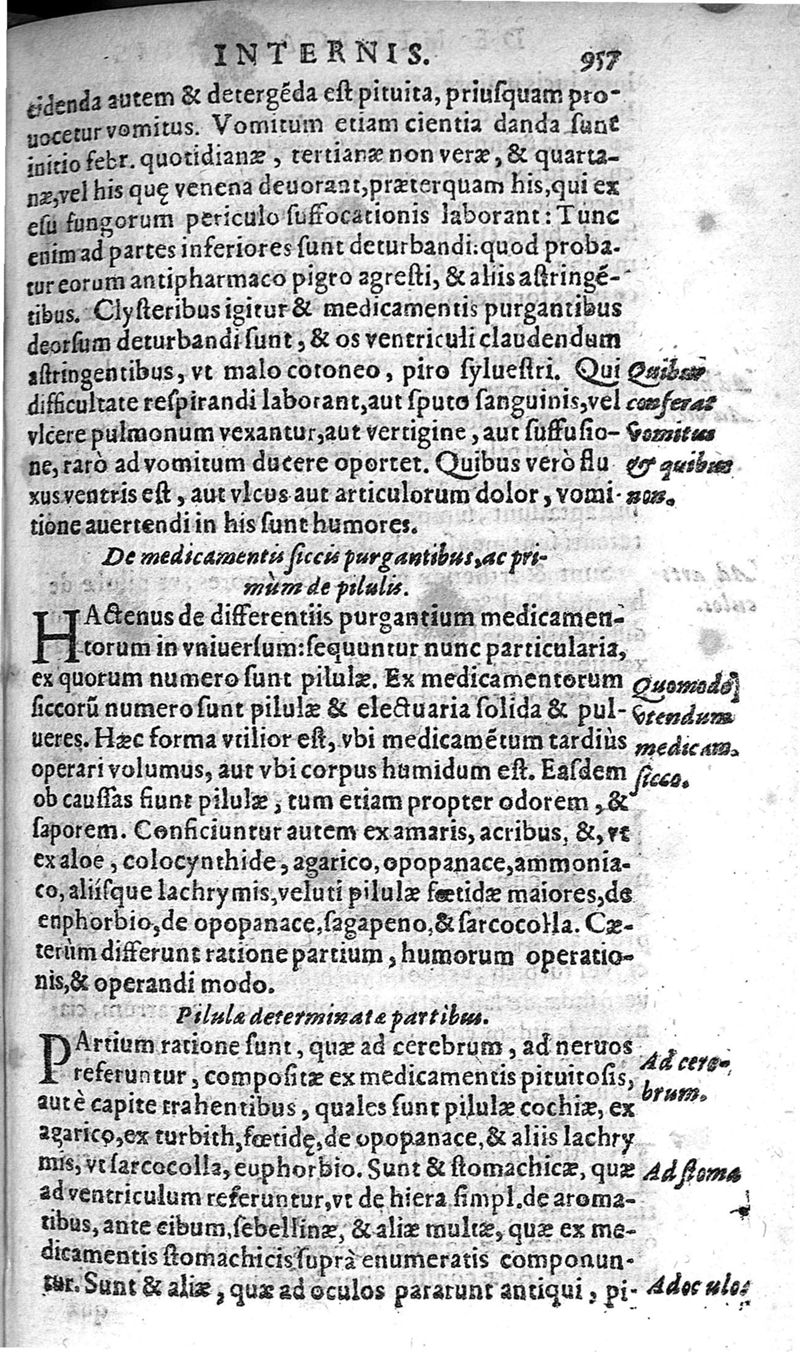 INTERNIS. 957
cidenda autem & detergẽda est pituita, priusquam pro-
uocetur vomitus. Vomitum etiam cientia danda sunt
initio febr. quotidianæ, tertianæ non veræ, & quarta-
næ, vel his quę venena deuorant, præterquam his, qui ex
esu fungorum periculo suffocationis laborant: Tunc
enim ad partes inferiores sunt deturbandi: quod proba-
tur eorum antipharmaco pigro agresti, & aliis astringẽ-
tibus. Clysteribus igitur & medicamentis purgantibus
deorsum deturbandi sunt, & os ventriculi claudendum
astringentibus, vt malo cotoneo, piro syluestri. Qui
difficultate respirandi laborant, aut sputo sanguinis, vel
vlcere pulmonum vexantur, aut vertigine, aut suffusio-
ne, rarò ad vomitum ducere oportet. Quibus verò flu
xus ventris est, aut vlcus aut articulorum dolor, vomi-
tione auertendi in his sunt humores.
Quibus
conferat
vomitus
& quibus
non.
De medicamentis siccis purgantibus, ac pri-
mùm de pilulis.
HActenus de differentiis purgantium medicamen-
torum in vniuersum: sequuntur nunc particularia,
ex quorum numero sunt pilulæ. Ex medicamentorum
siccorũ numero sunt pilulæ & electuaria solida & pul-
ueres. Hæc forma vtilior est, vbi medicamẽtum tardiùs
operari volumus, aut vbi corpus humidum est. Easdem
ob caussas fiunt pilulæ, tum etiam propter odorem, &
saporem. Conficiuntur autem ex amaris, acribus, &, vt
ex aloe, colocynthide, agarico, opopanace, ammonia-
co, aliisque lachrymis, veluti pilulæ fœtidæ maiores, de
enphorbio, de opopanace, sagapeno, & sarcocolla. Cæ-
terùm differunt ratione partium, humorum operatio-
nis, & operandi modo.
Quomodo
vtendum
medicam.
sicco.
Pilulæ determinatæ partibus.
PArtium ratione sunt, quæ ad cerebrum, ad neruos
referuntur, compositæ ex medicamentis pituitosis,
autè capite trahentibus, quales sunt pilulæ cochiæ, ex
agarico, ex turbith, fœtidę, de opopanace, & aliis lachry
mis, vt sarcocolla, euphorbio. Sunt & stomachicæ, quæ
ad ventriculum referuntur, vt de hiera simpl. de aroma-
tibus, ante cibum, sebellinæ, & aliæ multæ, quæ ex me-
dicamentis stomachicis suprà enumeratis componun-
tur. Sunt & aliæ, quæ ad oculos pararunt antiqui, pi-
Ad cere-
brum.
Ad stoma
Ad oculos